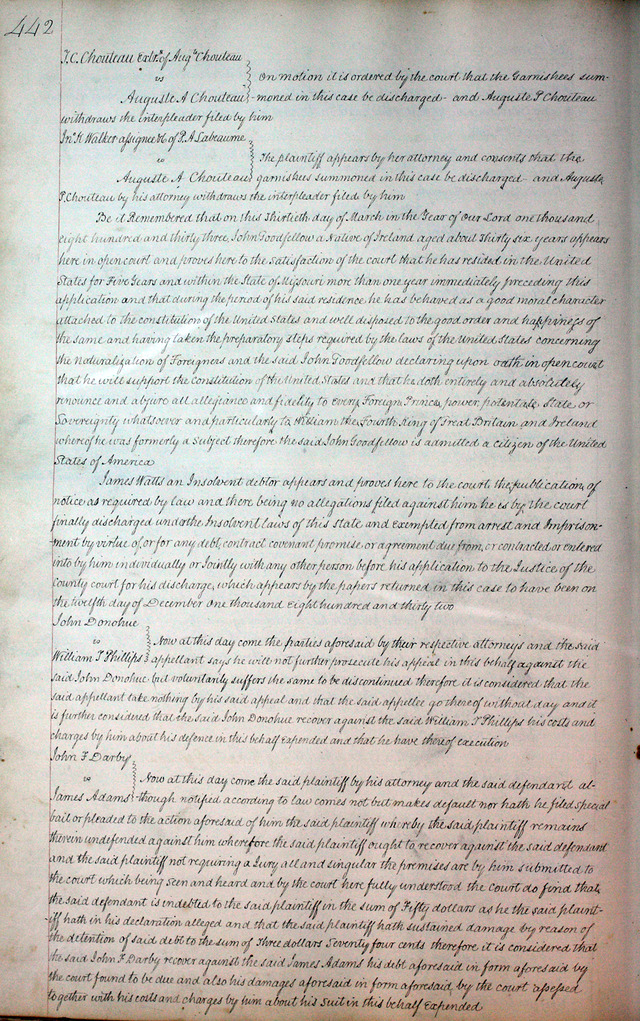 442
J. C. Chouteau Extrx of Augte Chouteau
vs
On motion it is ordered by the court that the Garnishees sum-
Auguste A Chouteau
moned in this case be discharged and Auguste P. Chouteau
withdraws the interpleader filed by him
Jno K Walker assignee &c of P. A Labeaume
vs
The plaintiff appears by her attorney and consents that the
Auguste A. Chouteau
garnishees summoned in this case be discharged and Auguste
P. Chouteau by his attorney withdraws the interpleader filed by him
Be it Remembered that on this Thirtieth day of March in the Year of Our Lord one thousand
eight hundred and thirty three John Goodfellow a Native of Ireland aged about Thirty six years appears
here in open court and proves here to the satisfaction of the court that he has resided in the United
States for Five Years and within the State of Missouri more than one year immediately preceding this
application and that during the period of his said residence he has behaved as a good moral character
attached to the constitution of the United States and well disposed to the good order and happiness of
the same and having taken the preparatory steps required by the laws of the United States concerning
the Naturalization of Foreigners and the said John Goodfellow declaring upon oath in open court
that he will support the constitution of the United States and that he doth entirely and absolutely
renounce and abjure all allegiance and fidelity to every Foreign Prince, power, potentate, State or
Sovereignty whatsoever and particularly to William the Fourth King of Great Britain and Ireland
whereof he was formerly a Subject therefore the said John Goodfellow is admitted a citizen of the United
States of America
James Watts an Insolvent debtor appears and proves here to the court the publication of
notice as required by law and there being no allegations filed against him he is by the court
finally discharged under the Insolvent laws of this state and exempled from arrest and Imprison-
ment by virtue of, or for any debt, contract covenant promise or agreement due from, or contracted or entered
into by him individually or Jointly with any other person before his application to the Justice of the
County court for his discharge, which appears by the papers returned in this case to have been on
the twelfth day of December one thousand eight hundred and thirty two
John Donohue
vs
Now at this day come the parties aforesaid by their respective attorneys and the said
William T Phillips
appellant says he will not further prosecute his appeal in this behalf against the
said John Donohue but voluntarily suffers the same to be discontinued therefore it is considered that the
said appellant take nothing by his said appeal and that the said appellee go thereof without day and it
is further considered that the said John Donohue recover against the said William T Phillips his costs and
charges by him about his defence in this behalf Expended and that he have thereof execution
John F Darby
vs
Now at this day come the said plaintiff by his attorney and the said defendant al-
James Adams
though notified according to law comes not but makes default nor hath he filed special
bail or pleaded to the action aforesaid of him the said plaintiff whereby the said plaintiff remains
therein undefended against him wherefore the said plaintiff ought to recover against the said defendant
and the said plaintiff not requiring a Jury all and singular the premises are by him submitted to
the court which being seen and heard and by the court here fully understood the court do find that
the said defendant is indebted to the said plaintiff in the sum of Fifty dollars as he the said plaint-
iff hath in his declaration alleged and that the said plaintiff hath sustained damage by reason of
the detention of said debt to the sum of Three dollars Seventy four cents therefore it is considered that
the said John F Darby recover against the said James Adams his debt aforesaid in form aforesaid by
the court found to be due and also his damages aforesaid in form aforesaid by the court assessed
together with his costs and charges by him about his Suit in this behalf Expended